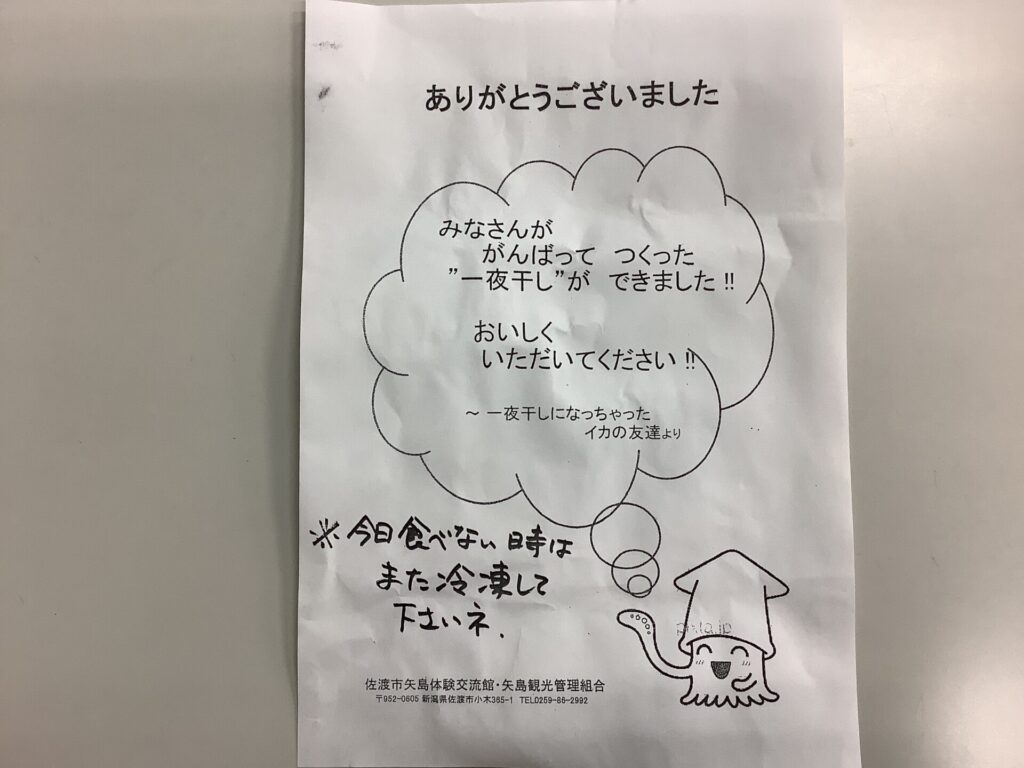 ありがとうございました
みなさんが
がんばって つくった
”一夜干し”が できました!!
おいしく
いただいてください!!
～ 一夜干しになっちゃった
イカの友達より
※今日食べない時は
また冷凍して
下さいネ.
pixta.jp
佐渡市矢島体験交流館・矢島観光管理組合
〒952-0605 新潟県佐渡市小木365-1 TEL0259-86-2992